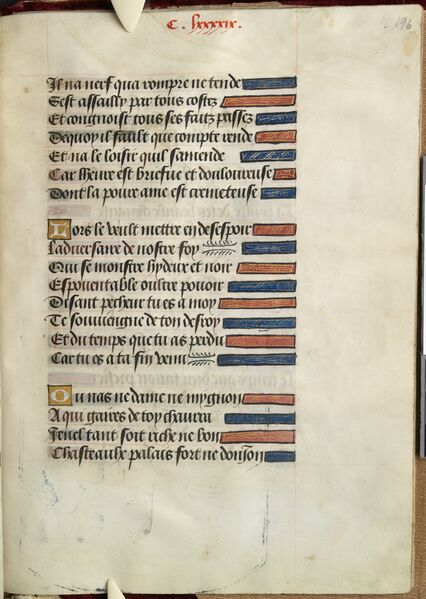 C. lxxxxix.
196
Il na nerf qua rompre ne tende
Sest assailly par tous costez
Et congnoist tous ses faitz passez
Dequoy il fault que compte rende
Et na le loisir quil samende
Car lheure est briefue et douloureuse
Dont la poure ame est cremeteuse
Lors le veult mettre en desespoir
Laduersaire de nostre foy
Qui se monstre hydeux et noir
Espouentable oultre pouoir
Disant pecheur tu es a moy
Te souuiengne de ton desroy
Et du temps que tu as perdu
Car tu es a ta fin venu
Tu nas ne dame ne mygnon
A qui gaires de toy chaura
Jeuel tant soit riche ne bon
Chasteau ne palais fort ne donjon